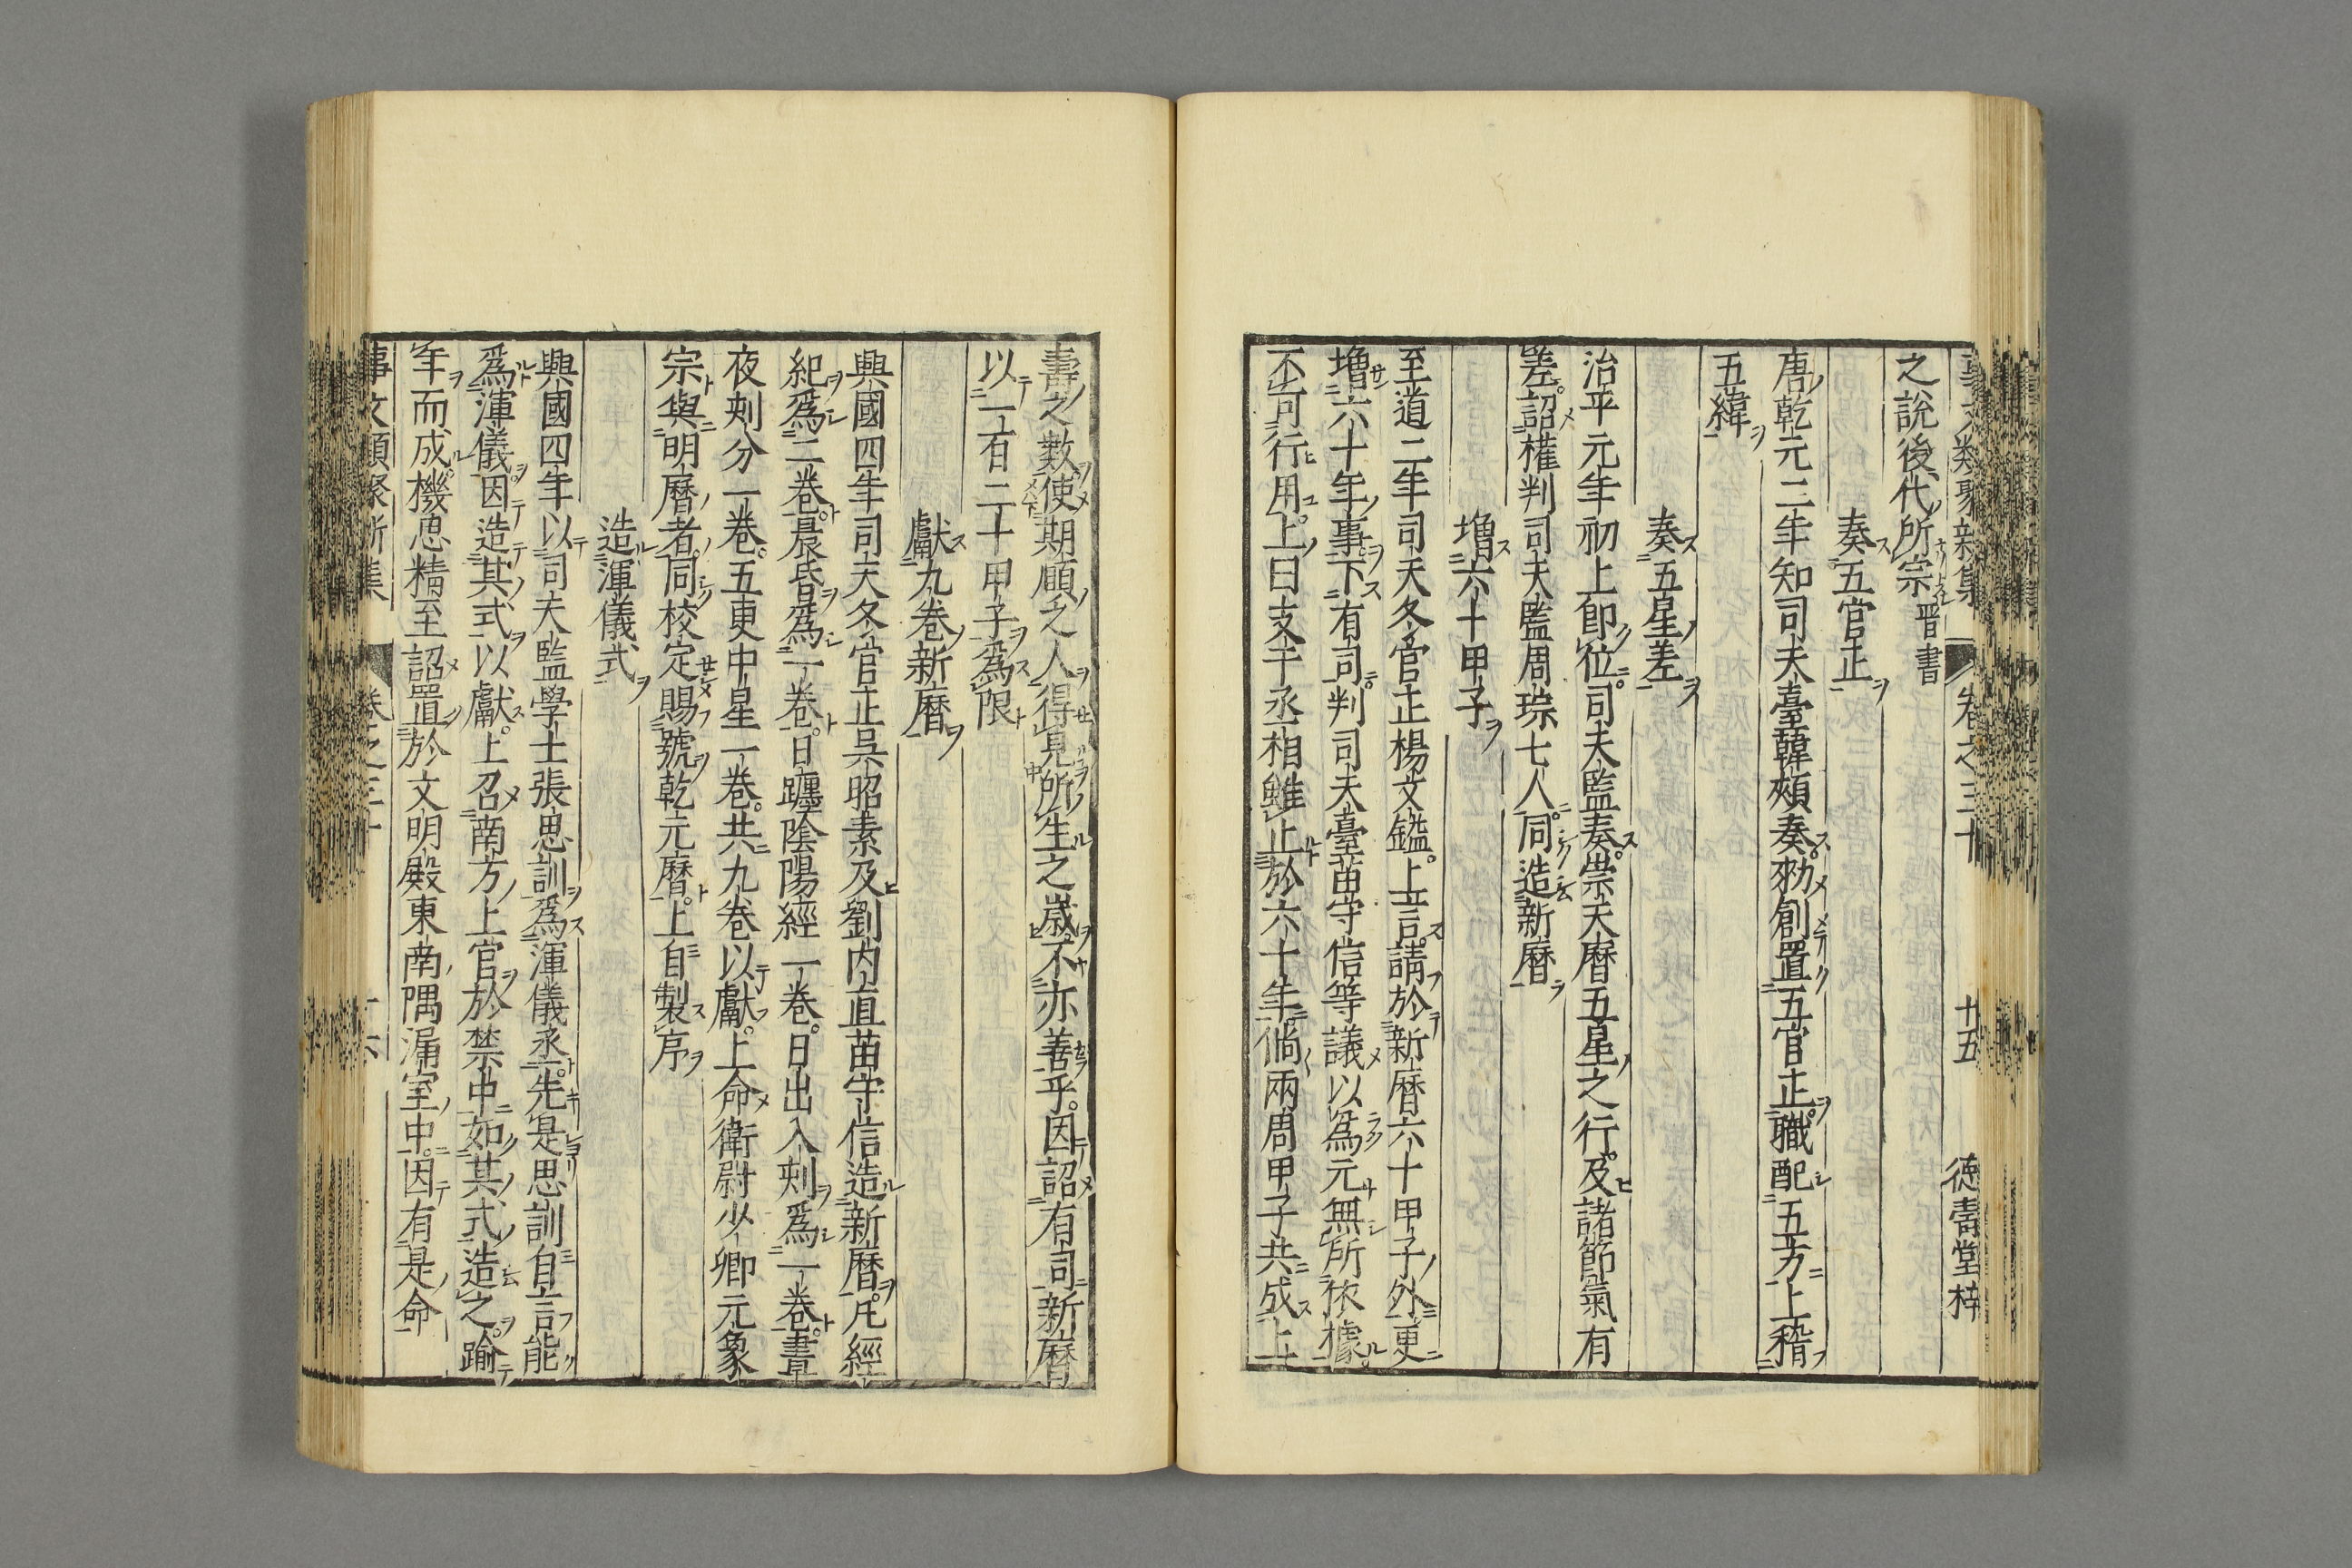 事文類聚新集 卷之三十 十五 德壽堂梓
之說後代所宗晋書
奏五官正
唐乾元二年知司天臺韓頰奏勑創置五官正職配五方上稽
五緯
奏五星差
治平元年初上卽位司天監奏崇天曆五星之行及諸節氣有
差詔權判司天監周琮七人同造新曆
增六十甲子
至道二年司天冬官正楊文鎰上言請於新曆六十甲子外更
增六十年事下有司判司天臺苗守信等議以爲元無所依據
不可行用上曰支干丞相雖止於六十年倘兩周甲子共成上
壽之數使期頤之人得見所生之歲不亦善乎因詔有司新曆
以一百二十甲子爲限
獻九卷新曆
興國四年司天冬官正吳昭素及劉內直苗守信造新曆凡經
紀爲二卷晨昏爲一卷日躔陰陽經一卷日出入刻爲一卷晝
夜刻分一卷五更中星一卷共九卷以獻上命衛尉少卿元象
宗與明曆者同校定賜號乾元曆上自製序
造渾儀式
興國四年以司天監學士張思訓爲渾儀丞先是思訓自言能
爲渾儀因造其式以獻上召南方上官於禁中如其式造之踰
年而成機思精至詔置於文明殿東南隅漏室中因有是命
事文類聚新集 卷之三十 十六